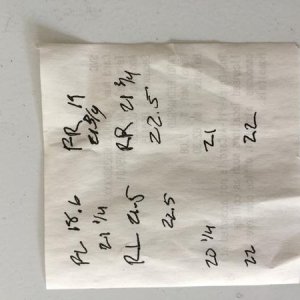 FL 18.6 FR 19
21 1/4 21 3/4
RL 21.5 RR 21 3/4
22.5 22.5
20 1/4 21
22 22